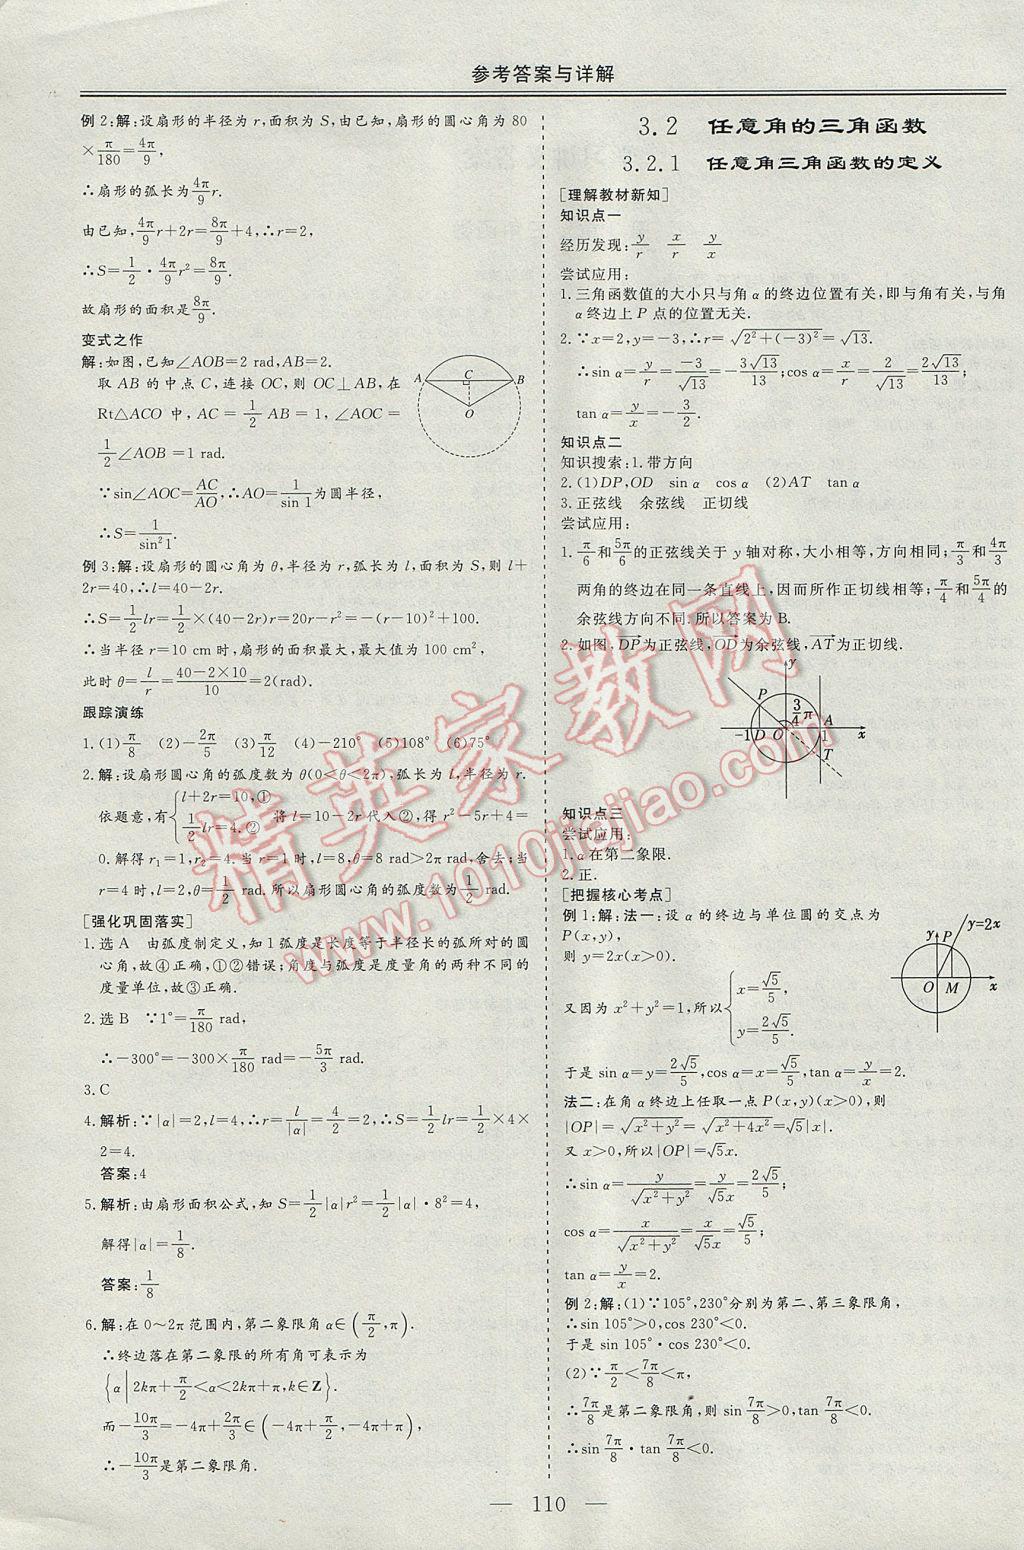 参考答案与详解
例2:解:设扇形的半径为r,面积为S,由已知,扇形的圆心角为80
×π/180=4π/9,
∴扇形的弧长为4π/9 r.
由已知,4π/9 r+2r=8π/9+4,∴r=2,
∴S=1/2·4π/9 r²=8π/9.
故扇形的面积是8π/9.
变式之作
解:如图,已知∠AOB=2 rad,AB=2.
取AB的中点C,连接OC,则OC⊥AB,在
Rt△ACO中,AC=1/2 AB=1,∠AOC=
1/2∠AOB=1 rad.
∵sin∠AOC=AC/AO,∴AO=1/sin 1为圆半径,
∴S=1/sin²1.
A C B
O
例3:解:设扇形的圆心角为θ,半径为r,弧长为l,面积为S,则l+
2r=40,∴l=40-2r.
∴S=1/2 lr=1/2×(40-2r)r=20r-r²=-(r-10)²+100.
∴当半径r=10 cm时,扇形的面积最大,最大值为100 cm²,
此时θ=l/r=40-2×10/10=2(rad).
跟踪演练
1.(1)π/8 (2)-2π/5 (3)π/12 (4)-210° (5)108° (6)75°
2.解:设扇形圆心角的弧度数为θ(0<θ<2π),弧长为l,半径为r.
依题意,有{l+2r=10,① 1/2 lr=4.② 将l=10-2r代入②,得r²-5r+4=
0.解得r₁=1,r₂=4.当r=1时,l=8,θ=8 rad>2π rad,舍去;当
r=4时,l=2,θ=1/2 rad.所以扇形圆心角的弧度数为1/2 rad.
[强化巩固落实]
1.选A 由弧度制定义,知1弧度是长度等于半径长的弧所对的圆
心角,故④正确,①②错误;角度与弧度是度量角的两种不同的
度量单位,故③正确.
2.选B ∵1°=π/180 rad,
∴-300°=-300×π/180 rad=-5π/3 rad.
3.C
4.解析:∵|α|=2,l=4,∴r=l/|α|=4/2=2,∴S=1/2 lr=1/2×4×
2=4.
答案:4
5.解析:由扇形面积公式,知S=1/2|α|r²=1/2|α|·8²=4,
解得|α|=1/8.
答案:1/8
6.解:在0~2π范围内,第二象限角α∈(π/2,π).
∴终边落在第二象限的所有角可表示为
{α|2kπ+π/2<α<2kπ+π,k∈Z}.
而-10π/3=-4π+2π/3∈(-4π+π/2,-4π+π),
∴-10π/3是第二象限角.
3.2 任意角的三角函数
3.2.1 任意角三角函数的定义
[理解教材新知]
知识点一
经历发现:y/r x/r y/x
尝试应用:
1.三角函数值的大小只与角α的终边位置有关,即与角有关,与角
α终边上P点的位置无关.
2.∵x=2,y=-3,∴r=√2²+(-3)²=√13.
∴sin α=y/r=-3/√13=-3√13/13;cos α=x/r=2/√13=2√13/13;
tan α=y/x=-3/2.
知识点二
知识搜索:1.带方向
2.(1)DP,OD sin α cos α (2)AT tan α
3.正弦线 余弦线 正切线
尝试应用:
1.π/6和5π/6的正弦线关于y轴对称,大小相等,方向相同;π/3和4π/3
两角的终边在同一条直线上,因而所作正切线相等;π/4和5π/4的
余弦线方向不同.所以答案为B.
2.如图,DP为正弦线,OD为余弦线,AT为正切线.
y
P 3/4π A
-1 D O 1 x
T
知识点三
尝试应用:
1.α在第二象限.
2.正.
[把握核心考点]
例1:解:法一:设α的终边与单位圆的交点为
P(x,y),
则y=2x(x>0).
又因为x²+y²=1,所以{x=√5/5, y=2√5/5.
y y=2x
P
O M x
于是sin α=y=2√5/5,cos α=x=√5/5,tan α=y/x=2.
法二:在角α终边上任取一点P(x,y)(x>0),则
|OP|=√x²+y²=√x²+4x²=√5|x|.
又x>0,所以|OP|=√5x.
∴sin α=y/√x²+y²=2x/√5x=2√5/5;
cos α=x/√x²+y²=x/√5x=√5/5;
tan α=y/x=2.
例2:解:(1)∵105°,230°分别为第二、第三象限角,
∴sin 105°>0,cos 230°<0.
于是sin 105°·cos 230°<0.
(2)∵π/2<7π/8<π,
∴7π/8是第二象限角,则sin 7π/8>0,tan 7π/8<0.
∴sin 7π/8·tan 7π/8<0.
精英家教网
www.1010jiajiao.com
— 110 —